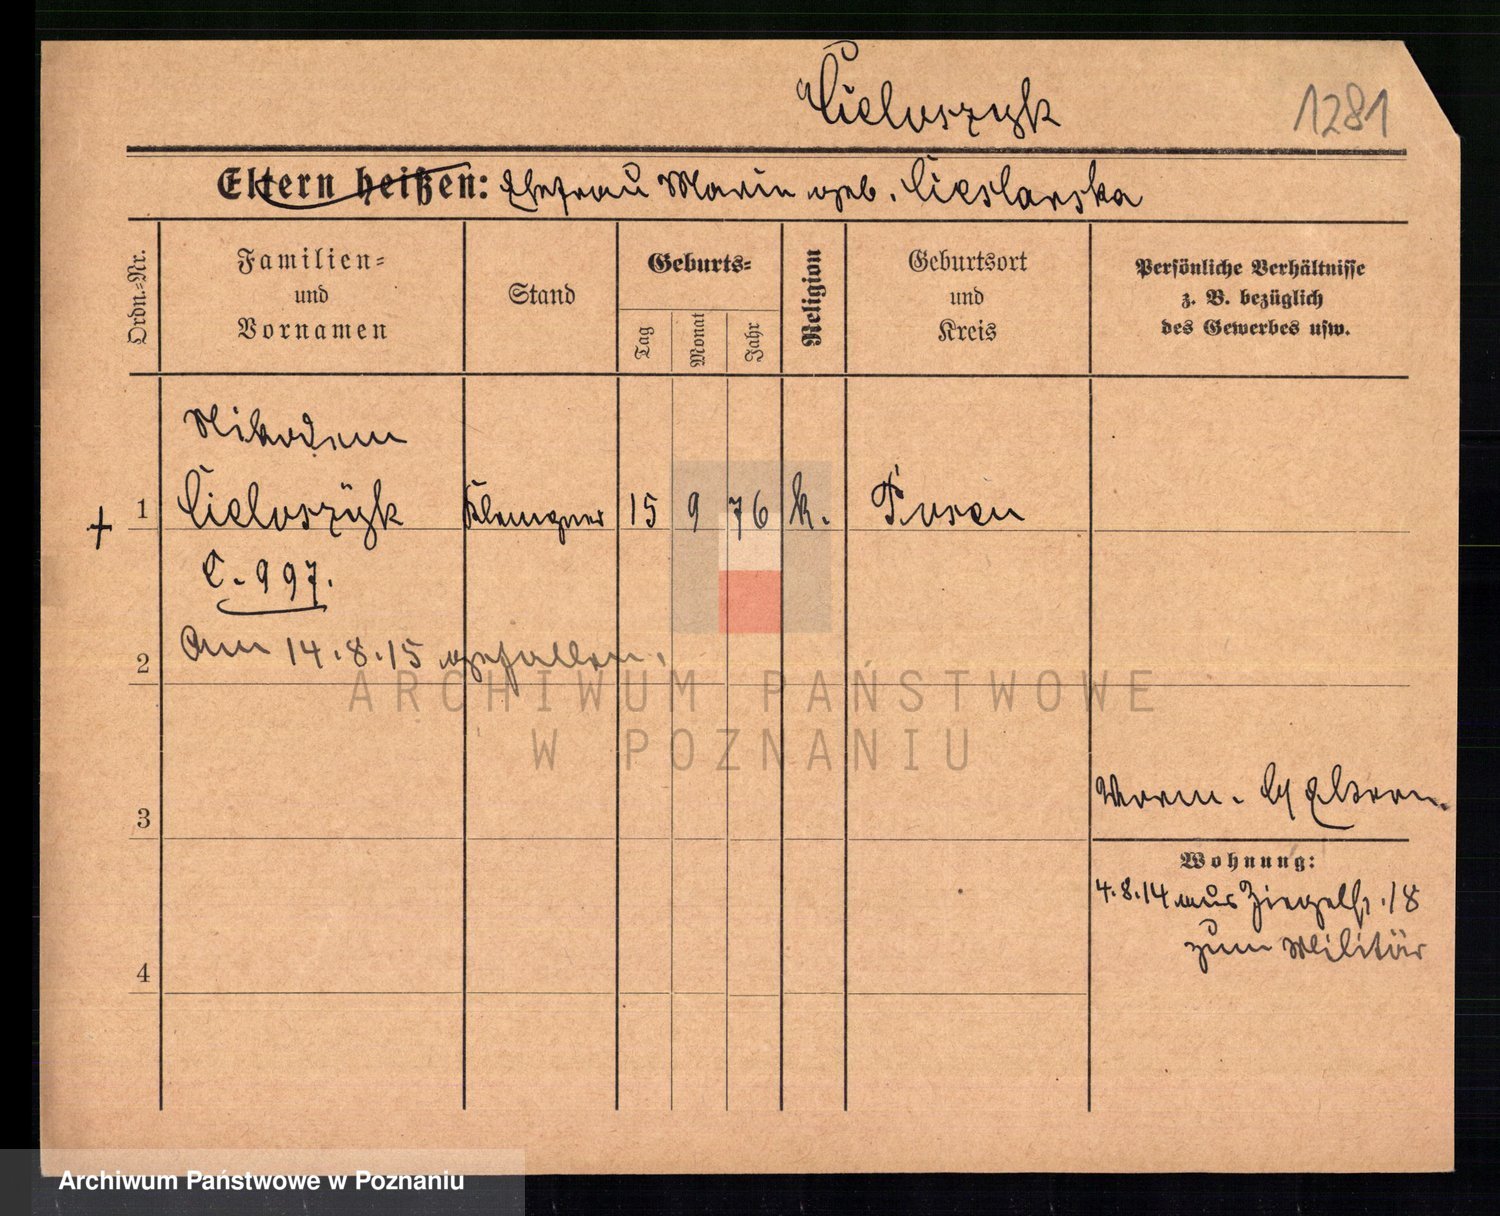 Cieloszyk
1281
Eltern heißen: Ehefrau Marie geb. Cieslarska
Ordn.-Nr.
Familien-
und
Vornamen
Stand
Geburts-
Tag
Monat
Jahr
Religion
Geburtsort
und
Kreis
Persönliche Verhältnisse
z. B. bezüglich
des Gewerbes usw.
Nikodem
+ 1 Cieloszÿk Klempner 15 9 76 k. Posen
C. 997.
2 Am 14.8.15 gefallen.
ARCHIWUM PAŃSTWOWE
W POZNANIU
3
Eltern.
Wohnung:
4.8.14 aus Ziegelstr. 18
zum Militär
4
Archiwum Państwowe w Poznaniu